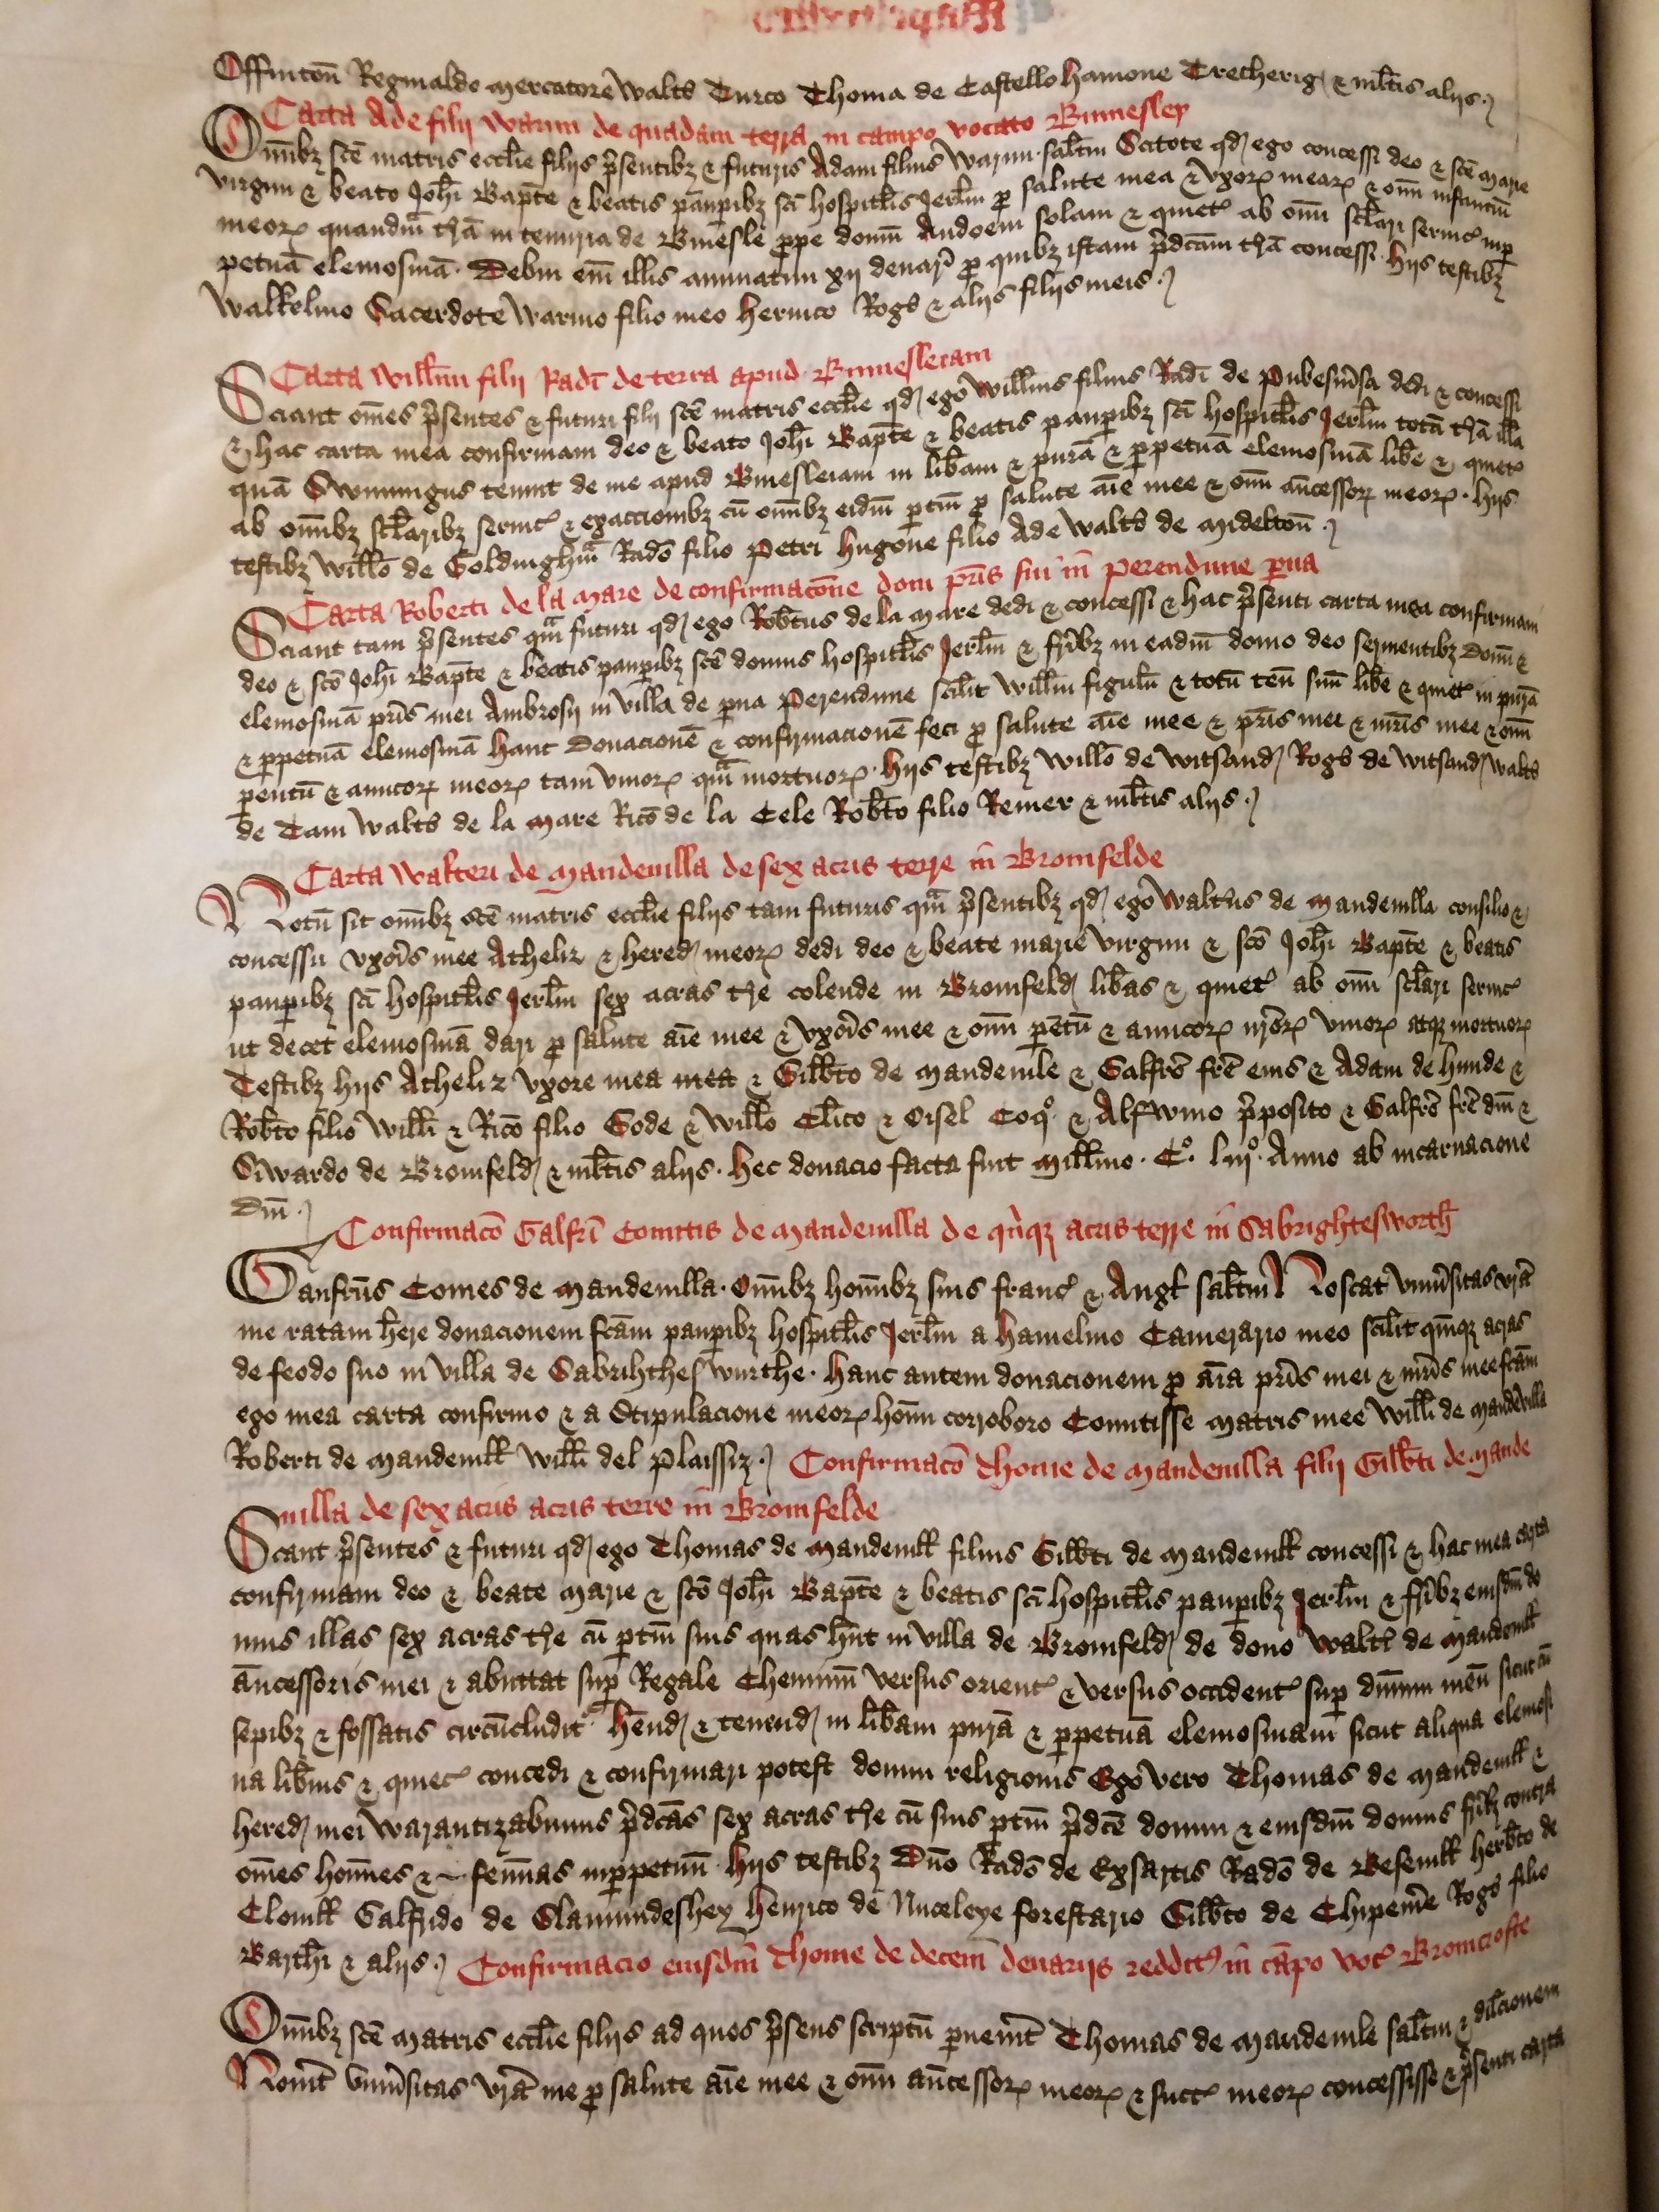 Offinton̄ Reginaldo mercatore Walt̄o Turco Thoma de Castello hamone Trecherig & mlt̄is alijs
Carta Ade filij Warini de quadam terra in campo vocato Binnesley
Omībȝ scē matris eccl̄ie filijs p̄sentibȝ & futuris Adam filius Warini salt̄m Scitote qd ego concessi deo & scē marie
virgini & beato Joh̄i Bapt̄e & beatis paup̄ibȝ sc̄i hospit̄lis Jerl̄m p salute mea & vxor meaꝝ & om̄i infantiū
meoꝝ quandam t̄rā in tenuria de Binesle ppe domū Andoeni solam & quiet̄ ab om̄i sc̄lari seruic̄ inp
petuā elemosinā Debin em̄ illis annuatim xij denar̄ p quibȝ istam p̄dc̄am t̄rā concessi hijs testibȝ
Walkelmo Sacerdote Warino filio meo henrico Roḡo & alijs filijs meis
Carta Will̄mi filij Radī de terra apud Binnesleiam
Sciant om̄es p̄sentes & futuri filij scē matris eccl̄ie qd ego Will̄ms filius Radī de Pubesm̄sa dedi & concessi
& hac carta mea confirmam deo & beato Joh̄i Bapt̄e & beatis paup̄ibȝ sc̄i hospit̄lis Jerl̄m totā t̄rā illā
quā Swmingus tenuit de me apud Binesleiam in lib̄am & purā & ppetuā elemosinā lib̄e & quiet̄
ab om̄ibȝ sc̄laribȝ seruic̄ & exaccionibȝ cū om̄ibȝ eidm̄ ptin̄ p salute aīe mee & om̄i an̄cessoꝝ meoꝝ hijs
testibȝ Will̄o de Goldinghm̄ Radō filio Petri hugone filio Ade Walt̄o de Midelton̄
Carta Roberti de la Mare de confirmacōne doni pr̄is sui in Perendune pua
Sciant tam p̄sentes qm̄ futuri qd ego Rob̄tus de la Mare dedi & concessi & hac p̄senti carta mea confirmam
deo & scō Joh̄i Bapt̄e & beatis paup̄ibȝ scē domus hospit̄lis Jerl̄m & fr̄ibȝ in eadm̄ domo deo seruientibȝ Donū &
elemosinā pr̄is mei Ambrosij in villa de pua Perendune scilit Will̄m figulū & totū ten̄ suū lib̄e & quiet̄ in purā
& ppetuā elemosinā hanc donacionē & confirmacionē feci p salute aīe mee & pr̄is mei & mr̄is mee & om̄i
pentū & amicoꝝ meoꝝ tam viuoꝝ qm̄ mortuoꝝ hijs testibȝ Will̄o de Witsand Roḡo de Witsand Walt̄o
de Tam Walt̄o de la Mare Ricō de la Cele Rob̄to filio Reiner & mlt̄is alijs
Carta Walteri de Mandeuilla de sex acris terre in Bromfelde
Notū sit om̄ibȝ scē matris eccl̄ie filijs tam futuris qm̄ p̄sentibȝ qd ego Walt̄us de Mandeuilla consilio &
concessu vxor̄is mee Atheliz & hered meoꝝ dedi deo & beate marie virgini & scō Joh̄i Bapt̄e & beatis
paup̄ibȝ sc̄i hospit̄lis Jerl̄m sex acras t̄re colende in Bromfeld lib̄as & quiet̄ ab om̄i sc̄lari seruic̄
ut decet elemosinā dari p salute aīe mee & vxor̄is mee & om̄i pentū & amicoꝝ nr̄oꝝ viuoꝝ atqȝ mortuoꝝ
Testibȝ hijs Atheliz vxore mea mea & Gilb̄to de Mandeuile & Galfr̄o fr̄e eius & Adam de hunde &
Rob̄to filio Will̄i & Ricō filio Gode & Will̄o Cl̄ico & Oisel Coqº & Alfwino p̄posito & Galfr̄o fr̄e dm̄ &
Siwardo de Bromfeld & mlt̄is alijs hec donacio facta fuit Mill̄mo Cº liijº Anno ab incarnacione
Dm̄
Confirmacō Galfr̄i Comitis de Mandeuilla de qnqȝ acris terre in Sabrightesworth̄
Gaufr̄us Comes de Mandeuilla Om̄ibȝ hom̄ibȝ suis franc̄ & Angl̄ salt̄m Noscat vniūsitas vr̄a
me ratam h̄ere donacionem fc̄am paup̄ibȝ hospit̄lis Jerl̄m a hamelino Camerario meo scilit quinqȝ acras
de feodo suo in villa de Sabrihtheswurthe hanc autem donacionem p aīa pr̄is mei & mr̄is mee fc̄am
ego mea carta confirmo & a Stipulacione meoꝝ hom̄i corroboro Comitisse matris mee Will̄i de Mandeuilla
Roberti de Mandeuill̄ Will̄i del Plaissiz Confirmacō Thome de Mandeuilla filij Gilb̄ti de Mande
uilla de sex acris acris terre in Bromfelde
Sciant p̄sentes & futuri qd ego Thomas de Mandeuill̄ filius Gilb̄ti de Mandeuill̄ concessi & hac mea carta
confirmam deo & beate Marie & scō Joh̄i Bapt̄e & beatis sc̄i hospit̄lis paup̄ibȝ Jerl̄m & fr̄ibȝ eiusdm̄ do
mus illas sex acras t̄re cū ptin̄ suis quas hn̄t in villa de Bromfeld de dono Walt̄i de Mandeuill̄
an̄cessoris mei & abuttat sup Regale Cheminū versus orient̄ & versus occident̄ sup dm̄um meū sicut cū
sepibȝ & fossatis circūcludit̄ h̄end & tenend in lib̄am purā & ppetuā elemosinam sicut aliqua elemosi
na lib̄ius & quiet̄ concedi & confirmari potest domui religionis Ego vero Thomas de Mandeuill̄ &
hered mei warantizabimus p̄dc̄as sex acras t̄re cū suis ptin̄ p̄dc̄e domui & eiusdm̄ domus fr̄ibȝ contra
om̄es hom̄es & fem̄nas inppetuū hijs testibȝ Dn̄o Radō de Exsartis Radō de Beseuill̄ herb̄to de
Clouill̄ Galfrido de Slamundeshey henrico de Nuceleye forestario Gilb̄to de Chipen̄e Roḡo filio
Barth̄i & alijs Confirmacio eiusdm̄ Thome de decem denarijs reddit̄ in cāpo voc̄ Bromcrofte
Omībȝ scē matris eccl̄ie filijs ad quos p̄sens scriptū puen̄it Thomas de Mandeuile salt̄m & dil̄cionem
Noūit vniūsitas vr̄a me p salute aīe mee & om̄i an̄cessoꝝ meoꝝ & succ̄ meoꝝ concessisse & p̄senti carta